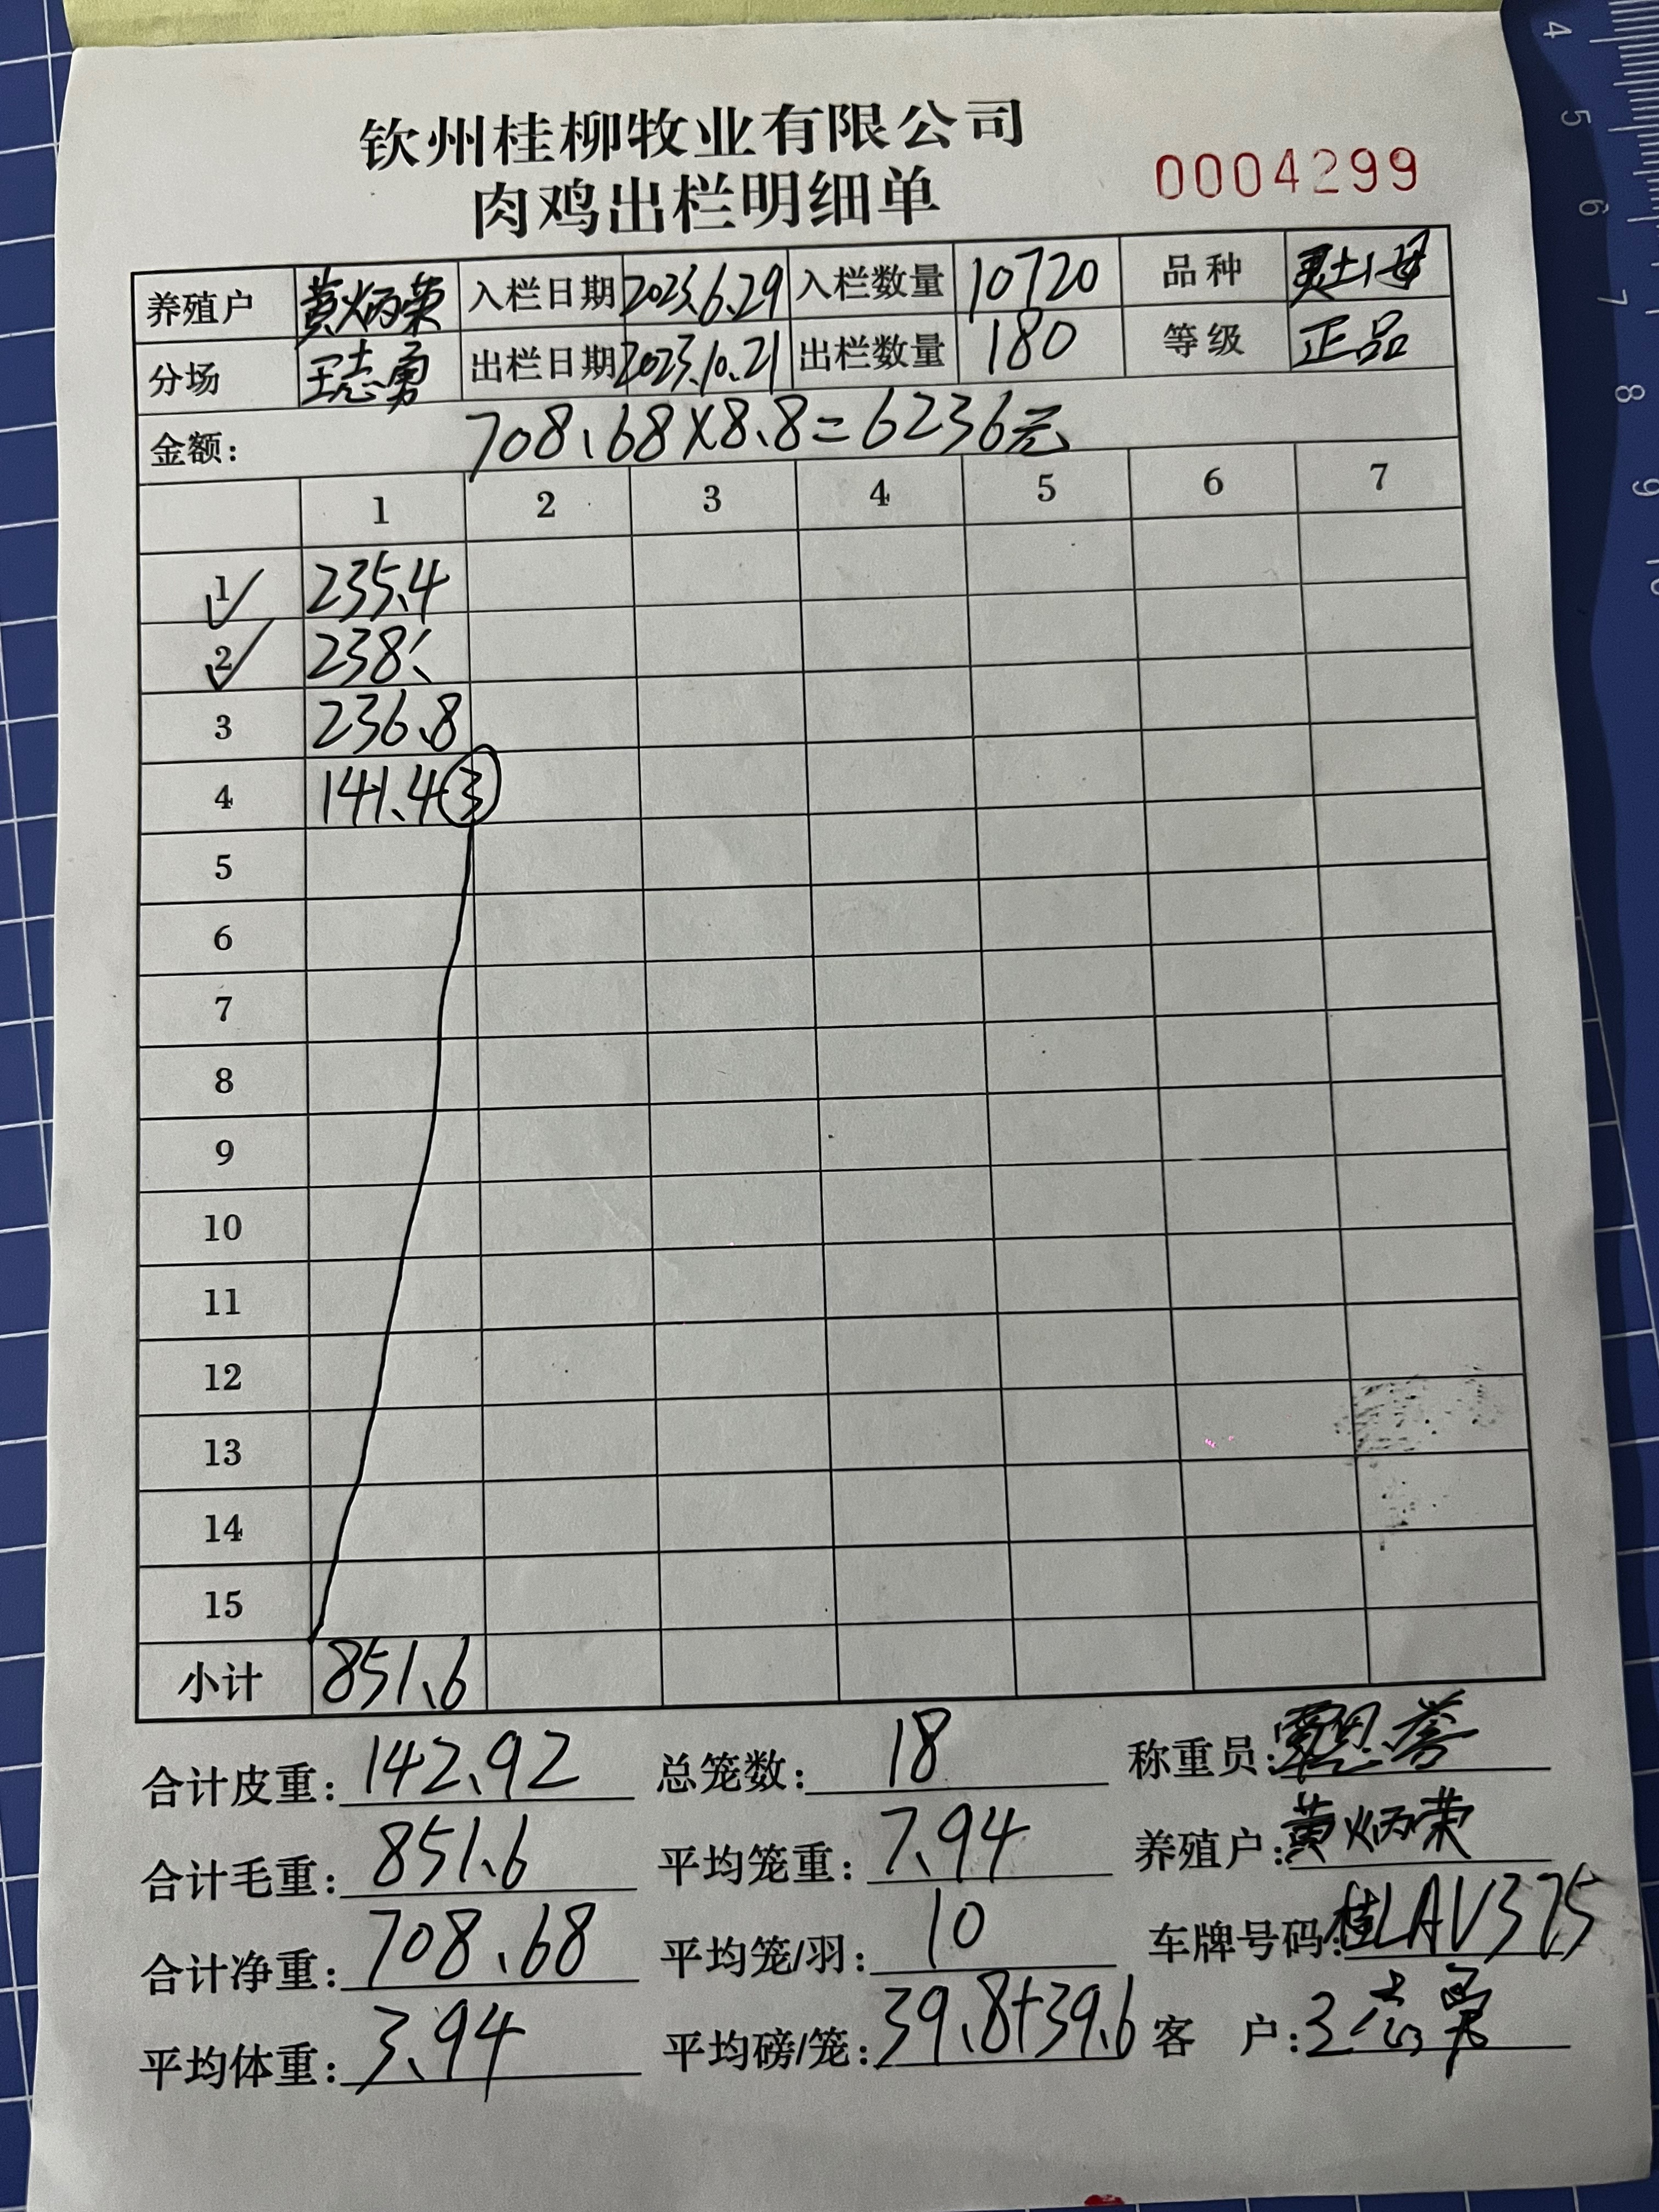 钦州桂柳牧业有限公司
肉鸡出栏明细单
0004299
养殖户 黄炳荣 入栏日期 2023.6.29 入栏数量 10720 品种
分场 王志勇 出栏日期 2023.10.21 出栏数量 180 等级 正品
金额: 708.68×8.8=6236元
1 2 3 4 5 6 7
1 235.4
2 238.
3 236.8
4 141.4 3
5
6
7
8
9
10
11
12
13
14
15
小计 851.6
合计皮重: 142.92 总笼数: 18 称重员:
合计毛重: 851.6 平均笼重: 7.94 养殖户: 黄炳荣
合计净重: 708.68 平均笼/羽: 10 车牌号码: 桂LAV375
平均体重: 3.94 平均磅/笼: 39.8+39.6 客 户: 王志勇
4
5
6
7
8
9
10